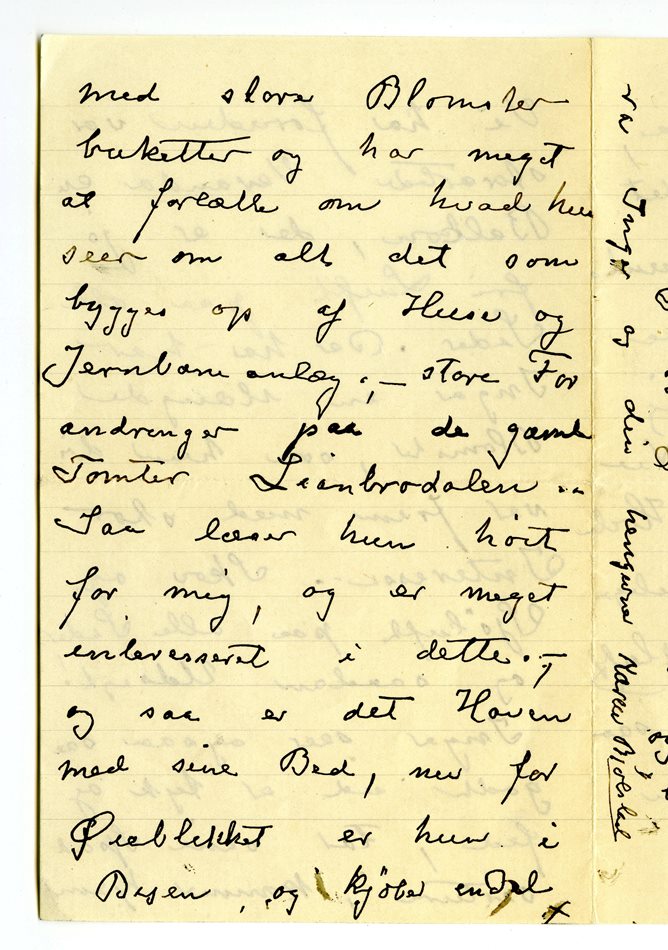 med store Blomster
buketter og har meget
at fortælle om hvad hun
seer om alt det som
bygges op af Huse og
Jernbaneanlæg; – store For
andringer paa de gamle
Tomter Lianbrodalen..
Saa læser hun høit
for mig, og er meget
interesseret i dette. –
og saa er det Haven
med sine Bed, nu for
Øieblikket er hun i
Byen, og kjöber endel
fra Inger og din hengivne Karen Bjølstad